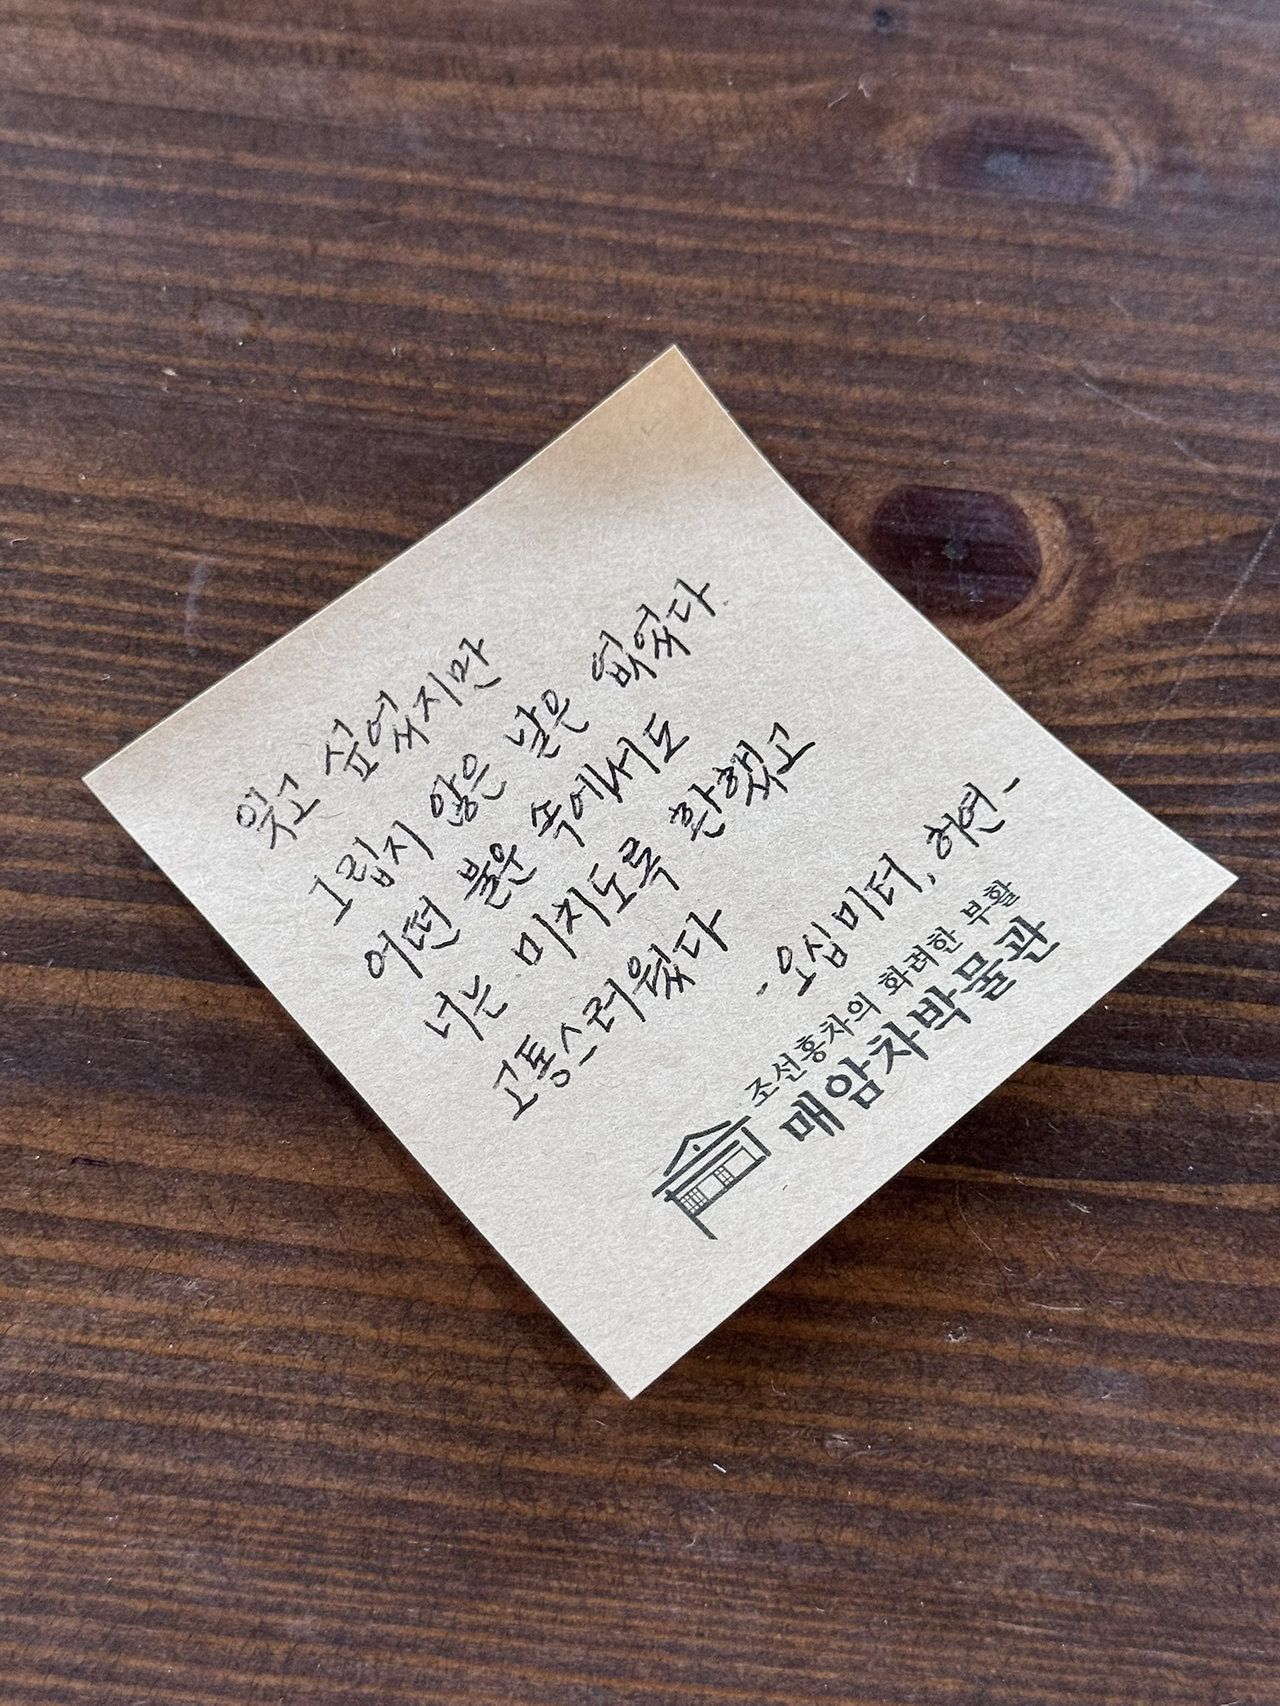 잊고 싶었지만
그립지 않은 날은 없었다.
어떤 불운 속에서도
너는 미치도록 환했고
고통스러웠다
- 오십미터, 허연 -
조선홍차의 화려한 부활
매암차박물관